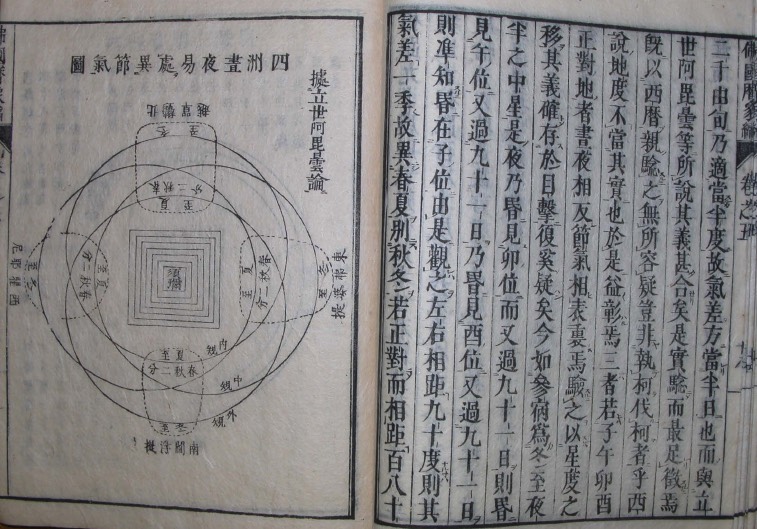 佛國曆象編 卷之五
二千由旬乃適當半度故氣差方當半日也而與立
世阿毘曇等所說其義甚合矣是實驗而最足徵焉
旣以西曆親驗之無所容疑豈非執柯伐柯者乎西
說地度不當其實也於是益彰焉三者若子午卯酉
正對地者晝夜相反節氣相表裏焉驗之以星度之
移其義確存於目擊復奚疑矣今如參宿爲冬至夜
半之中星是夜乃昏見卯位而又過九十一日則昏
見午位又過九十一日乃昏見酉位又過九十一日
則準知昏在子位由是觀之左右相距九十度則其
氣差一季故異春夏別秋冬若正對而相距百八十
四洲晝夜易處異節氣圖
據立世阿毘曇論
北鬱單越
冬至
春秋二分
夏至
東婆提
冬至
春秋二分
夏至
須彌
夏至
春秋二分
冬至
西瞿耶尼
夏至
春秋二分
冬至
南閻浮提
内規
中規
外規